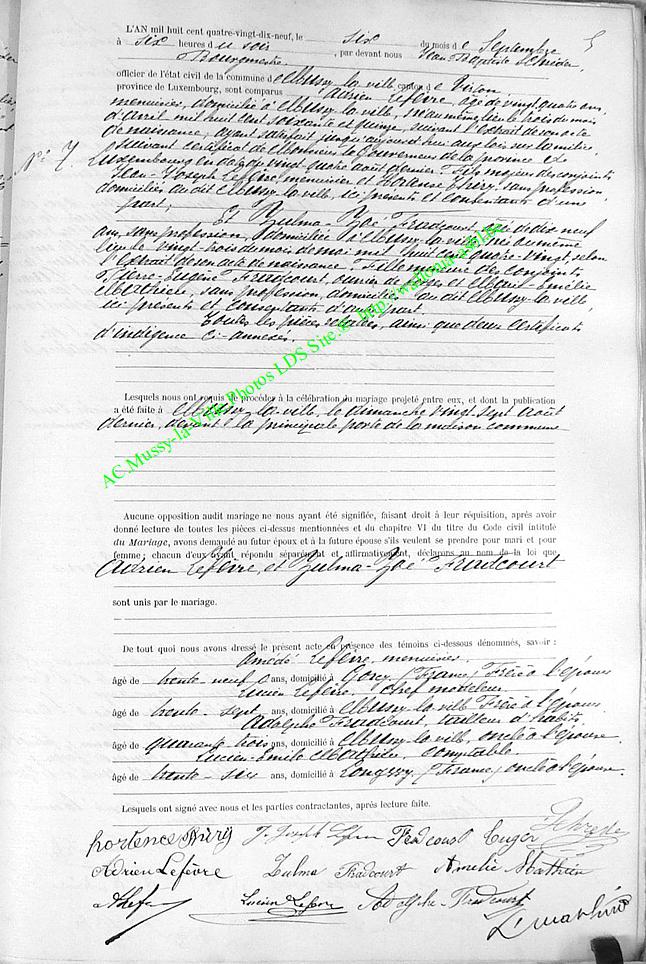 5
L'AN mil huit cent quatre-vingt-dix-neuf, le six du mois de Septembre
à six heures du soir, par devant nous Jean Baptiste
Bourgmestre
officier de l'état civil de la commune de Mussy-la-ville, canton de Virton
province de Luxembourg, sont comparus Adrien Lefèvre, âgé de vingt quatre ans,
menuisier, domicilié à Mussy-la-ville, né au même lieu le trois du mois
d'avril mil huit cent soixante et quinze, suivant l'extrait de son acte
de naissance; ayant satisfait jusqu'aujourd'hui aux lois sur la milice,
N° 7.
suivant certificat de Monsieur le Gouverneur de la province de
Luxembourg en date du vingt quatre août dernier. Fils majeur des conjoints
Jean-Joseph Lefèvre, menuisier et Hortense Thiéry, sans profession,
domiciliés au dit Mussy-la-ville, ici présents et consentants d'une
part;
Et Zulma-Zoé Fradcourt, âgée de dix neuf
ans, sans profession, domiciliée à Mussy-la-ville, née au même
lieu le vingt-trois du mois de mai mil huit cent quatre-vingt, selon
l'extrait de son acte de naissance. Fille mineure des conjoints
Pierre-Eugène Fradcourt, ouvrier de forges et Marie-Amélie
sans profession, domiciliés au dit Mussy-la-ville,
ici présents et consentants d'autre part.
Toutes les pièces relatées, ainsi que deux certificats
d'indigence ci-annexés.
Lesquels nous ont requis de procéder à la célébration du mariage projeté entre eux, et dont la publication
a été faite à Mussy-la-ville, le dimanche vingt-sept août
dernier, devant la principale porte de la maison commune
AC.Mussy-la-Ville Photos LDS Site.© http:/wallonia-asbl.be
Aucune opposition audit mariage ne nous ayant été signifiée, faisant droit à leur réquisition, après avoir
donné lecture de toutes les pièces ci-dessus mentionnées et du chapitre VI du titre du Code civil intitulé
du Mariage, avons demandé au futur époux et à la future épouse s'ils veulent se prendre pour mari et pour
femme; chacun d'eux ayant répondu séparément et affirmativement, déclarons au nom de la loi que
Adrien Lefèvre, et Zulma-Zoé Fradcourt
sont unis par le mariage.
De tout quoi nous avons dressé le présent acte en présence des témoins ci-dessous dénommés, savoir :
Amédé Lefèvre, menuisier,
âgé de trente-neuf ans, domicilié à Gorcy (France) Frère à l'époux
Lucien Lefèvre, chef modeleur
âgé de trente-sept ans, domicilié à Mussy-la-ville Frère à l'époux
Adolphe Fradcourt, tailleur d'habits,
âgé de quarante trois ans, domicilié à Mussy-la-ville, oncle à l'épouse
Lucien-Emile comptable
âgé de trente-six ans, domicilié à Longwy (France) oncle à l'épouse.
Lesquels ont signé avec nous et les parties contractantes, après lecture faite.
hortence J. Joseph Fradcourt Eugèn
Adrien Lefèvre Zulma Fradcourt Amélie Mathieu
Lucien Lefèvre Adolphe Fradcourt